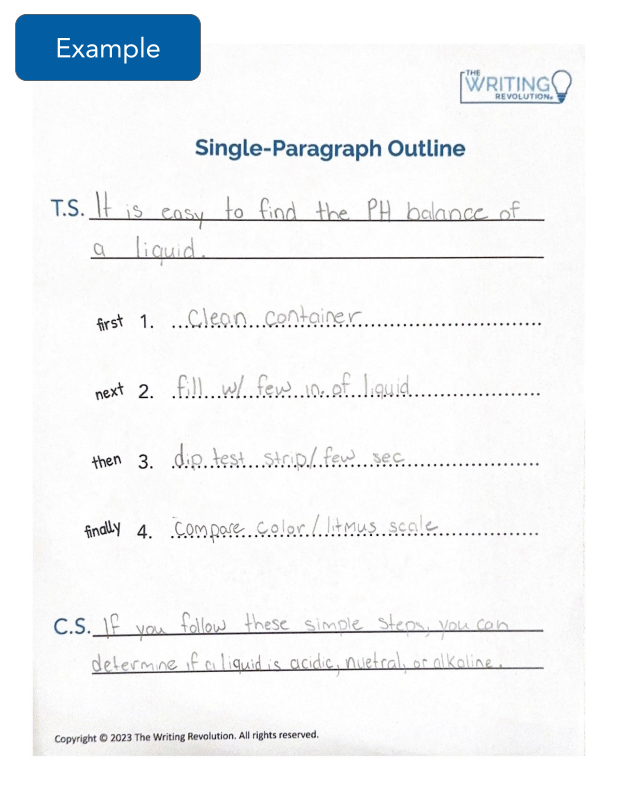 Example
THE
WRITING
REVOLUTION®
Single-Paragraph Outline
T.S. It is easy to find the PH balance of
a liquid.
first 1. Clean container
next 2. fill w/ few in. of liquid
then 3. dip test strip/few sec
finally 4. Compare color/litmus scale
C.S. If you follow these simple steps, you can
determine if a liquid is acidic, nuetral, or alkaline.
Copyright © 2023 The Writing Revolution. All rights reserved.